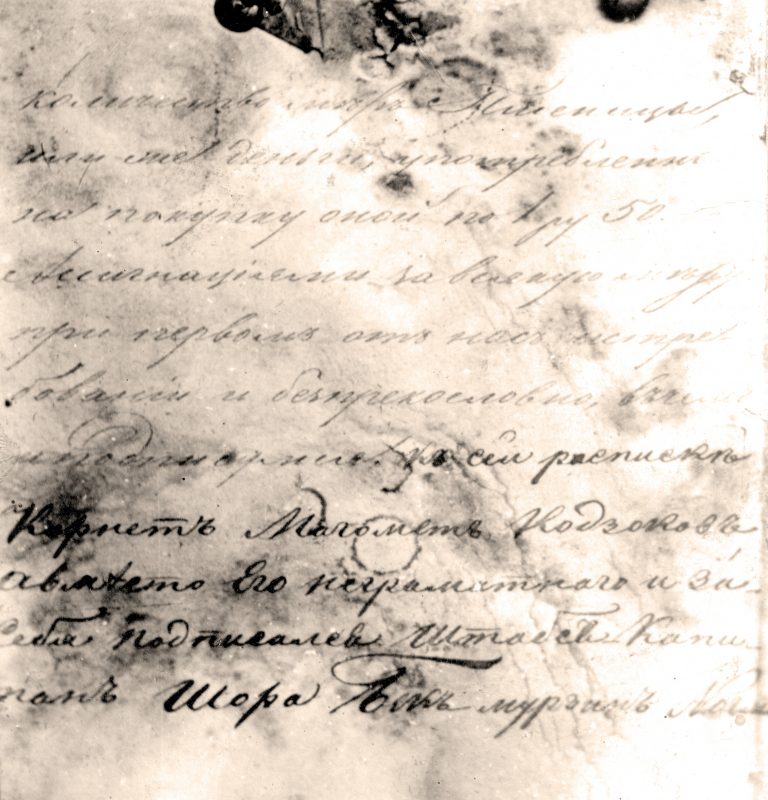 количество мѣръ Пшеницы,
или же деньги, употребленны
на покупку оной по 1 ру 50
Ассигнаціями за всякую мѣру
при первомъ отъ насъ истре-
бованіи и безпрекословно, въ чемъ
и подписуемся. Къ сей роспискѣ
Корнетъ Магометъ Кодзоковъ
авмѣсто Его неграматнаго и за
Себя подписался Штабсъ Капи-
танъ Шора Бекъ мурзинъ